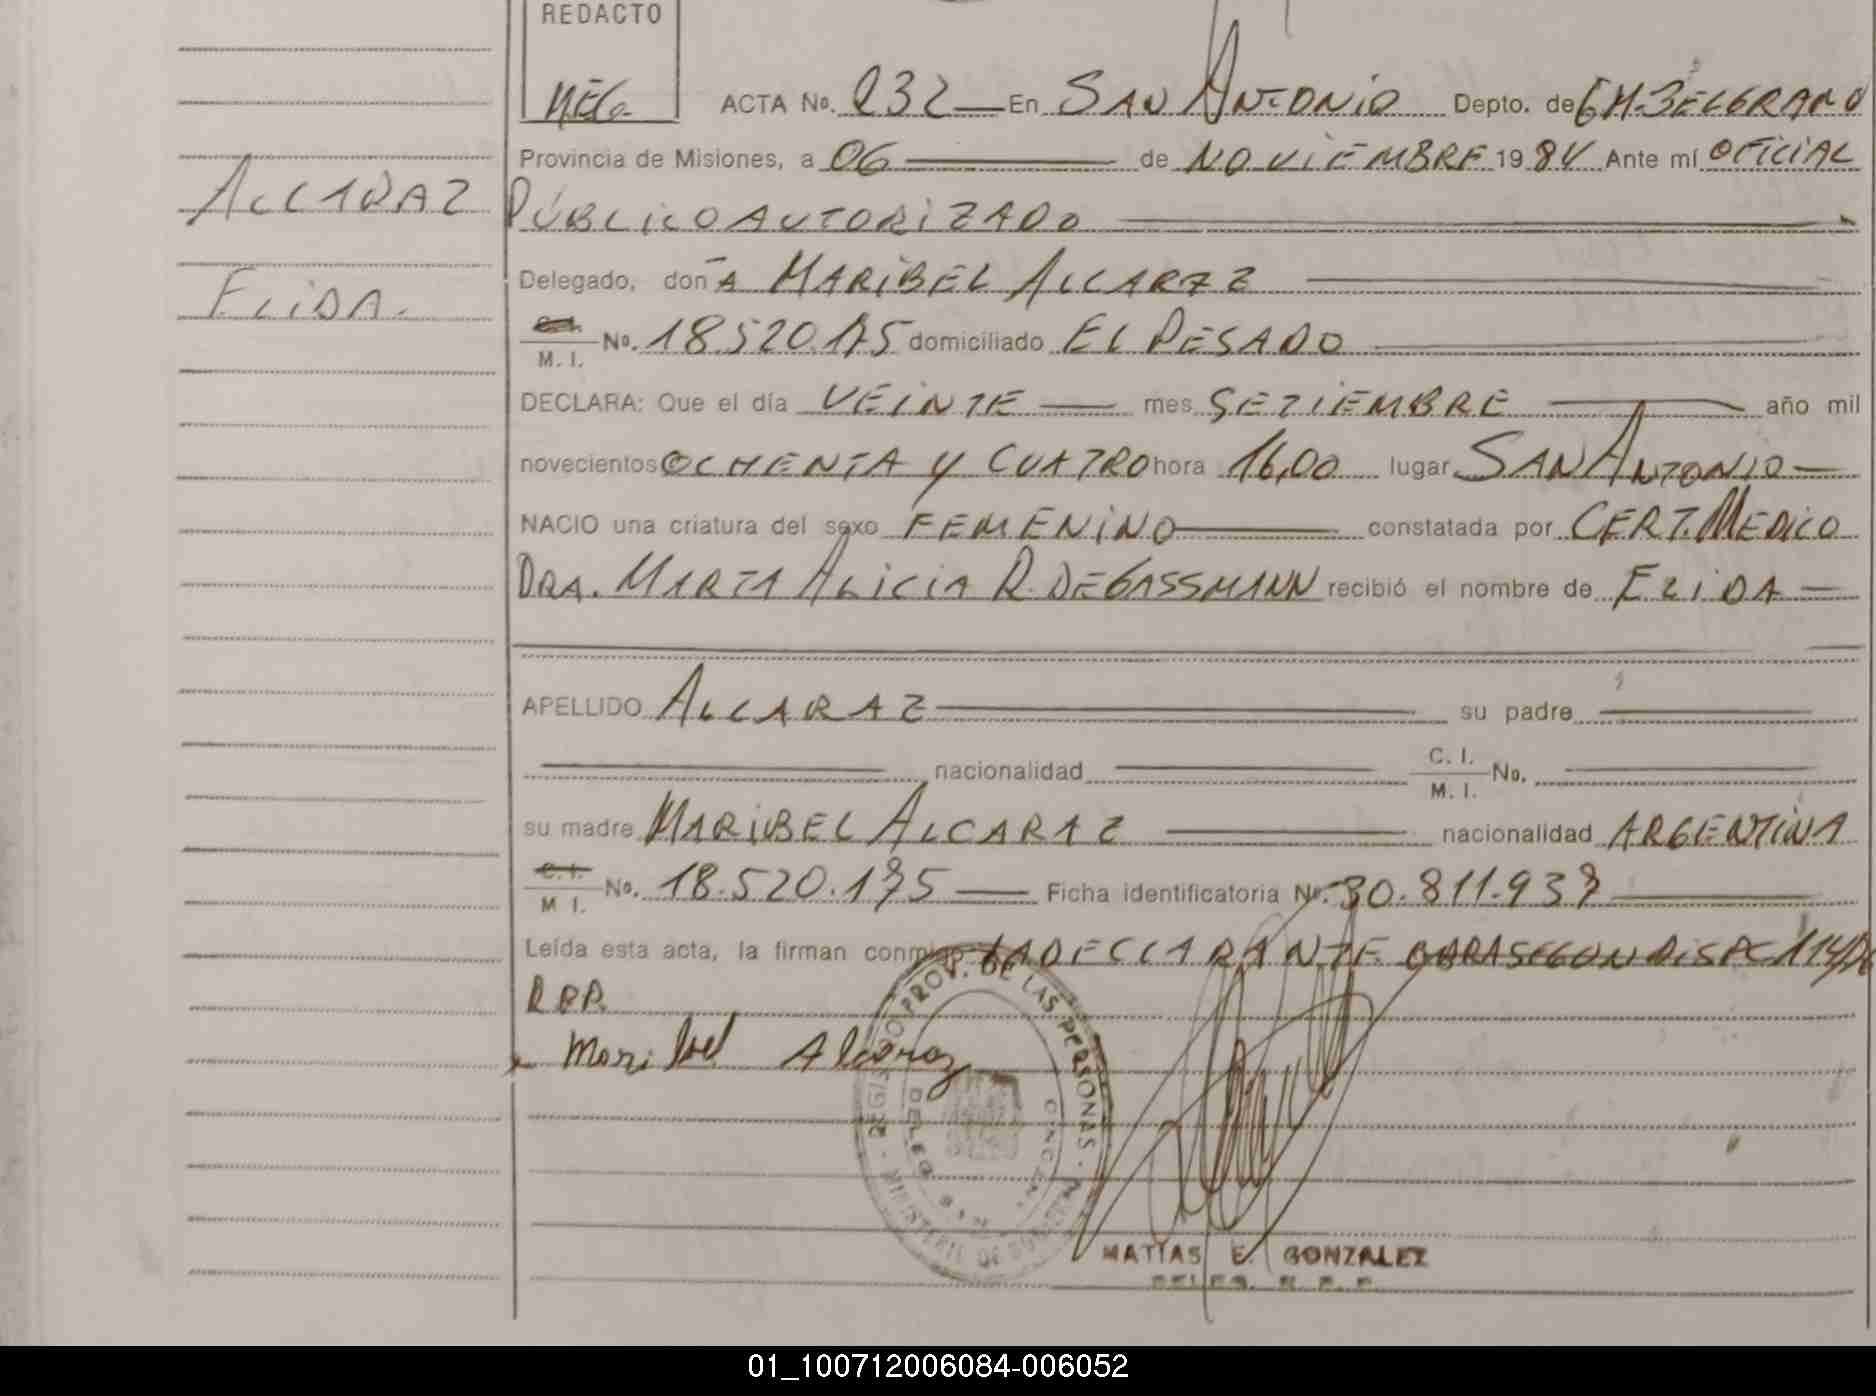 REDACTO
MEG.
ACTA No. 232 En SAN ANTONIO Depto. de G M. BELGRANO
Provincia de Misiones, a 06 de NOVIEMBRE 1984 Ante mí OFICIAL
ALCARAZ
PÚBLICO AUTORIZADO
Delegado, don A MARIBEL ALCARAZ
ELIDA.
C.I. / M. I. No. 18.520.175 domiciliado EL PESADO
DECLARA: Que el día VEINTE mes SETIEMBRE año mil
novecientos OCHENTA Y CUATRO hora 16,00 lugar SAN ANTONIO
NACIO una criatura del sexo FEMENINO constatada por CERT. MEDICO
DRA. MARTA ALICIA R. DE GASSMANN recibió el nombre de ELIDA
APELLIDO ALCARAZ su padre
nacionalidad C. I. / M. I. No.
su madre MARIBEL ALCARAZ nacionalidad ARGENTINA
C.I. / M I. No. 18.520.175 Ficha identificatoria No. 30.811.937
Leída esta acta, la firman conmigo LA DECLARANTE SEGUN DISP. 114/
RPP.
Maribel Alcaraz
REGISTRO PROV. DE LAS PERSONAS - MINISTERIO DE GOBIERNO
DELEG.
MATIAS E. GONZALEZ
DELEG. R. P. P.
01_100712006084-006052